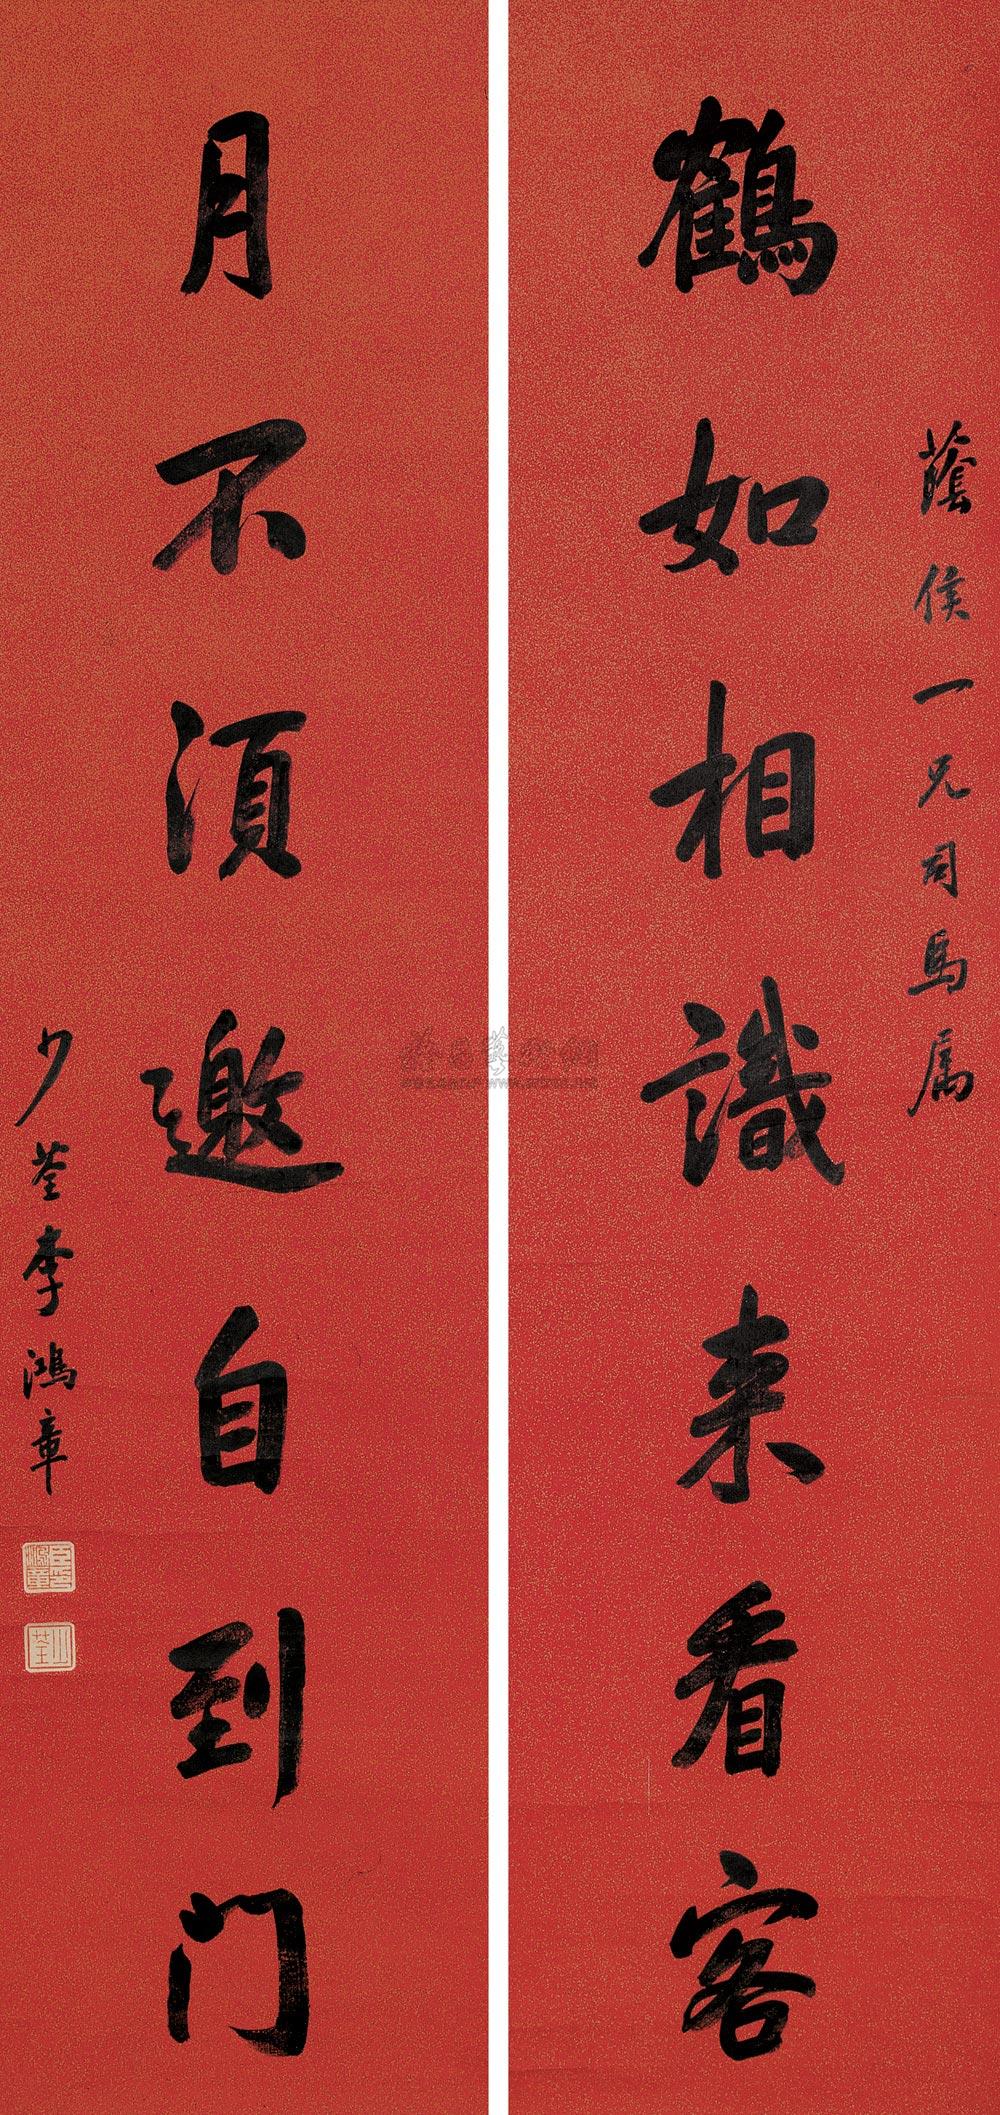 蔭侯一兄司馬属
鶴如相識來看客
月不須邀自到门
少荃李鴻章
臣鴻章印
少荃